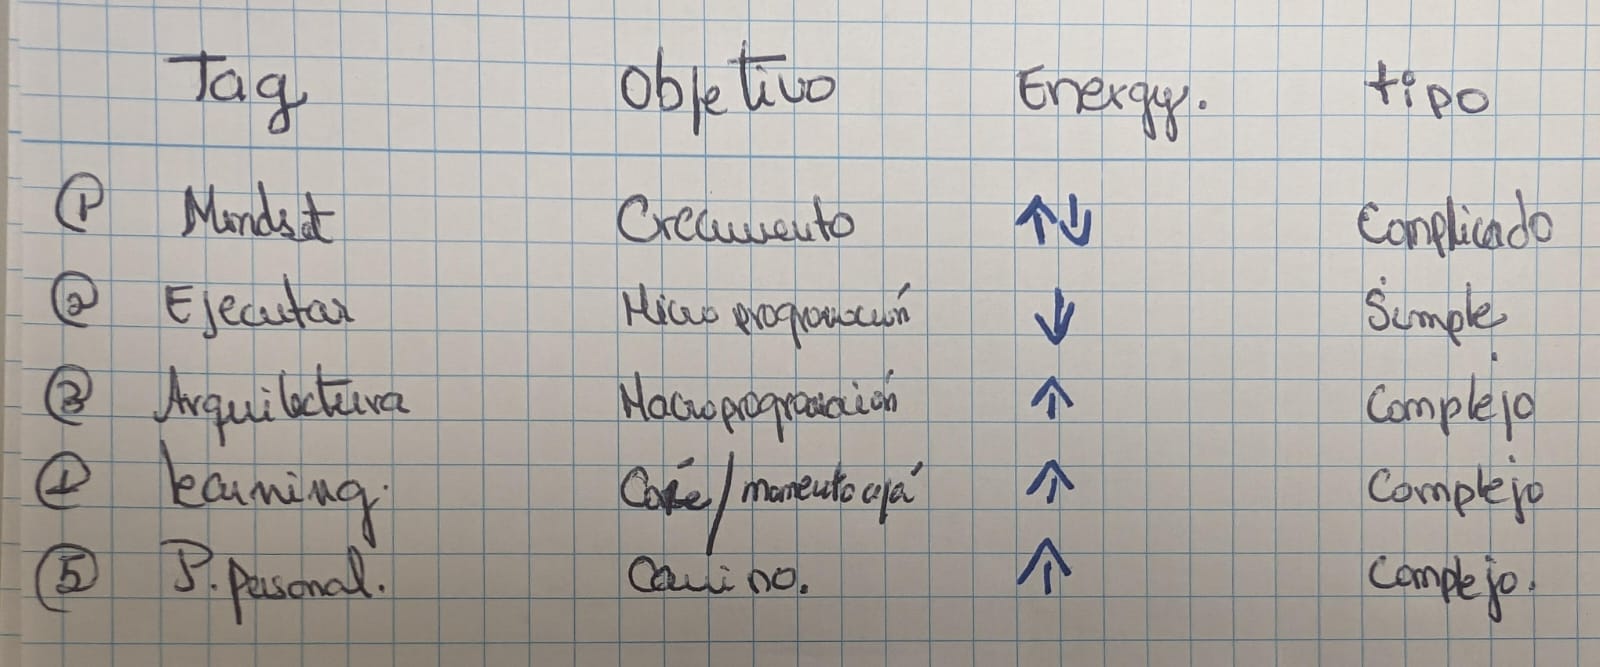 Tag Objetivo Energy. tipo
① Mindset Crecimiento ↑↓ Complicado
② Ejecutar Micro programación ↓ Simple
③ Arquitectura Macroprogramación ↑ Complejo
④ learning. / momento ajá ↑ Complejo
⑤ P. personal. Camino. ↑ Complejo.